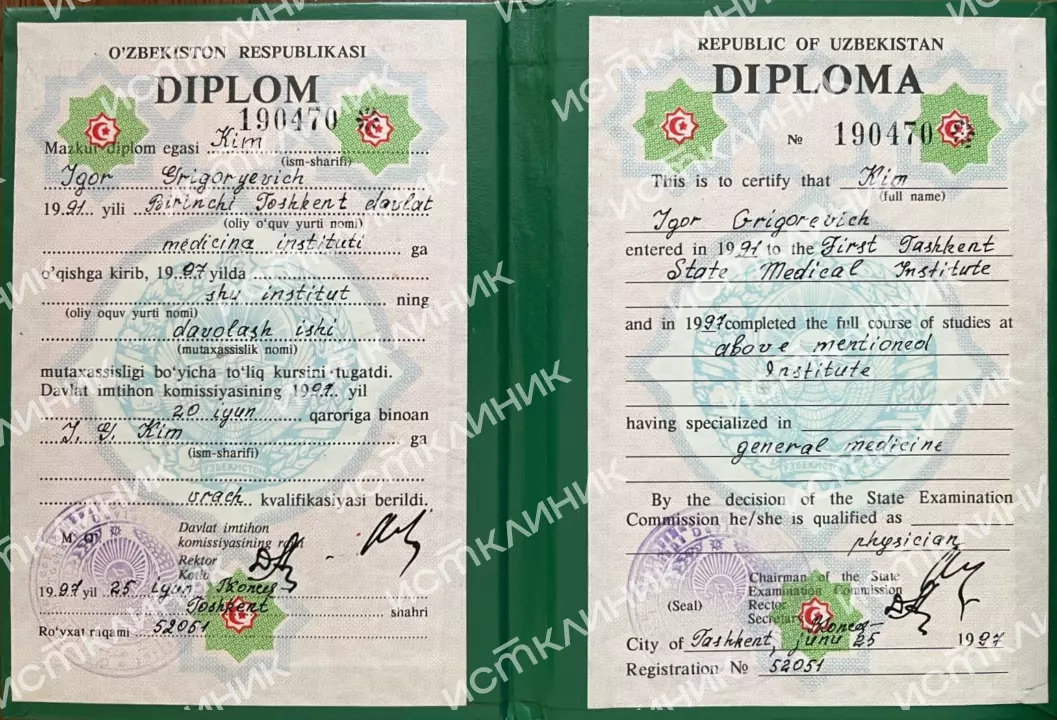 O'ZBEKISTON RESPUBLIKASI
DIPLOM
190470
Mazkur diplom egasi Kim
(ism-sharifi)
Igor Grigoryevich
1991 yili Birinchi Toshkent davlat
(oliy o'quv yurti nomi)
medicina instituti ga
o'qishga kirib, 1997 yilda
shu institut ning
(oliy oquv yurti nomi)
davolash ishi
(mutaxassislik nomi)
mutaxassisligi bo'yicha to'liq kursini tugatdi.
Davlat imtihon komissiyasining 1997 yil
20 iyun qaroriga binoan
I. G. Kim ga
(ism-sharifi)
vrach kvalifikasiyasi berildi.
Davlat imtihon
M. O'. komissiyasining
Rektor
Kotib
1997 yil 25 iyun
Toshkent shahri
Ro'yxat raqami 52051
REPUBLIC OF UZBEKISTAN
DIPLOMA
№ 190470
This is to certify that Kim
(full name)
Igor Grigorevich
entered in 1991 to the First Tashkent
State Medical Institute
and in 1997 completed the full course of studies at
above mentioned
Institute
having specialized in
general medicine
By the decision of the State Examination
Commission he/she is qualified as
physician
Chairman of the State
Examination Commission
(Seal) Rector
Secretary
City of Tashkent, junu 25 1997
Registration № 52051
ИСТКЛИНИК